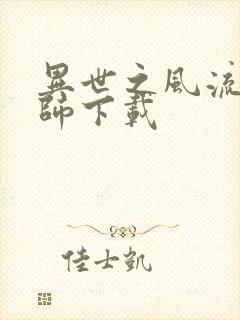 異世之風流
師下載
佳士凱